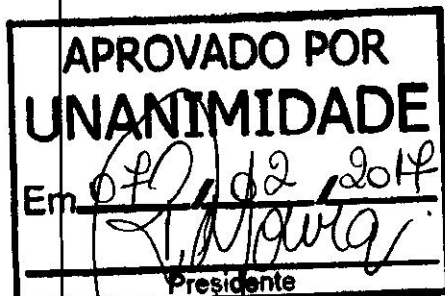 APROVADO POR
UNANIMIDADE
Em 07 / 02 / 2017
Presidente